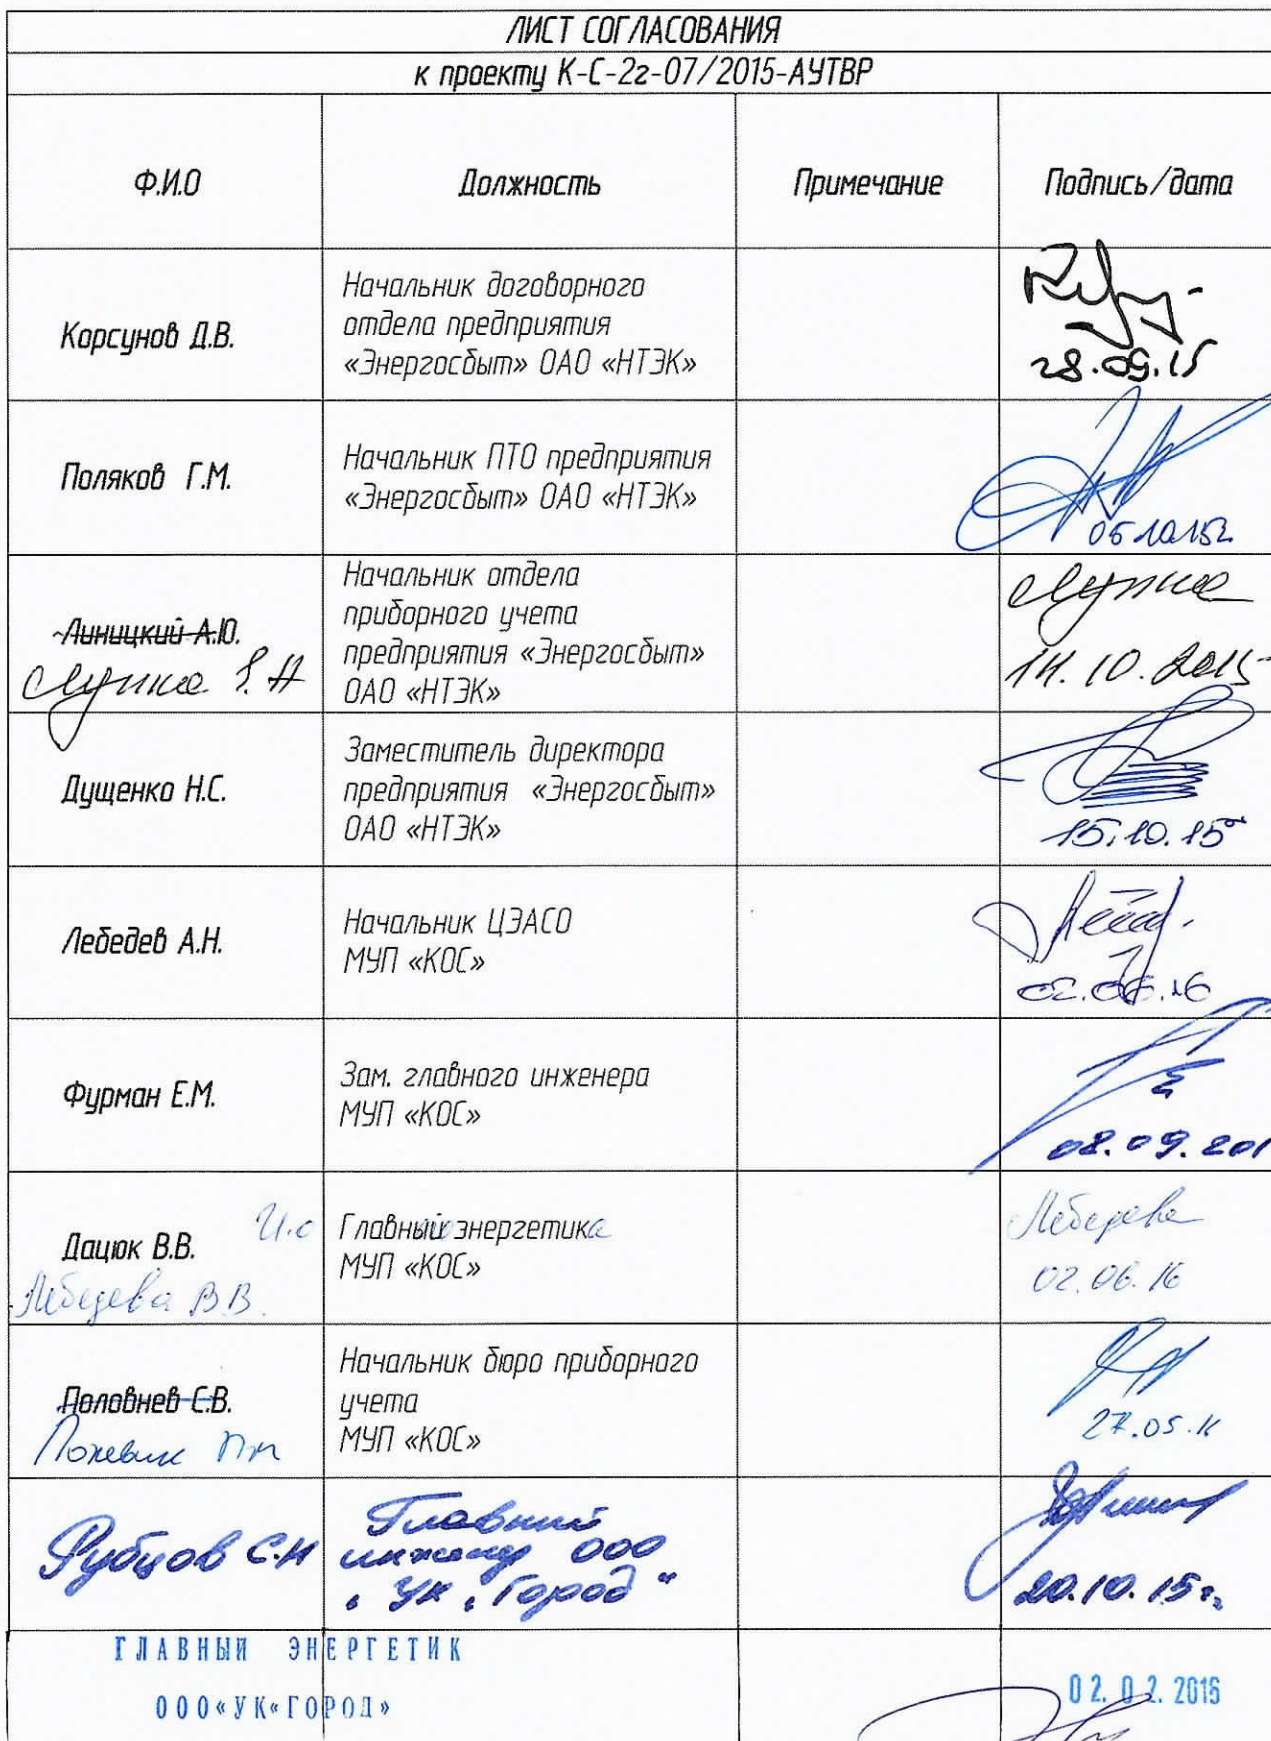 ЛИСТ СОГЛАСОВАНИЯ
к проекту К-С-2г-07/2015-АУТВР
Ф.И.О
Должность
Примечание
Подпись/дата
Корсунов Д.В.
Начальник договорного
отдела предприятия
«Энергосбыт» ОАО «НТЭК»
28.09.15
Поляков Г.М.
Начальник ПТО предприятия
«Энергосбыт» ОАО «НТЭК»
05.10.15г.
Линицкий А.Ю.
Начальник отдела
приборного учета
предприятия «Энергосбыт»
ОАО «НТЭК»
14.10.2015
Дущенко Н.С.
Заместитель директора
предприятия «Энергосбыт»
ОАО «НТЭК»
15.10.15
Лебедев А.Н.
Начальник ЦЭАСО
МУП «КОС»
02.06.16
Фурман Е.М.
Зам. главного инженера
МУП «КОС»
08.09.201
Дацюк В.В.
И.о
Лебедева В.В.
Главный энергетика
МУП «КОС»
Лебедева
02.06.16
Половнев С.В.
Начальник бюро приборного
учета
МУП «КОС»
27.05.16
Рубцов С.Н
Главный
инженер ООО
"УК "Город"
20.10.15г.
ГЛАВНЫЙ ЭНЕРГЕТИК
ООО«УК«ГОРОД»
02.02.2016